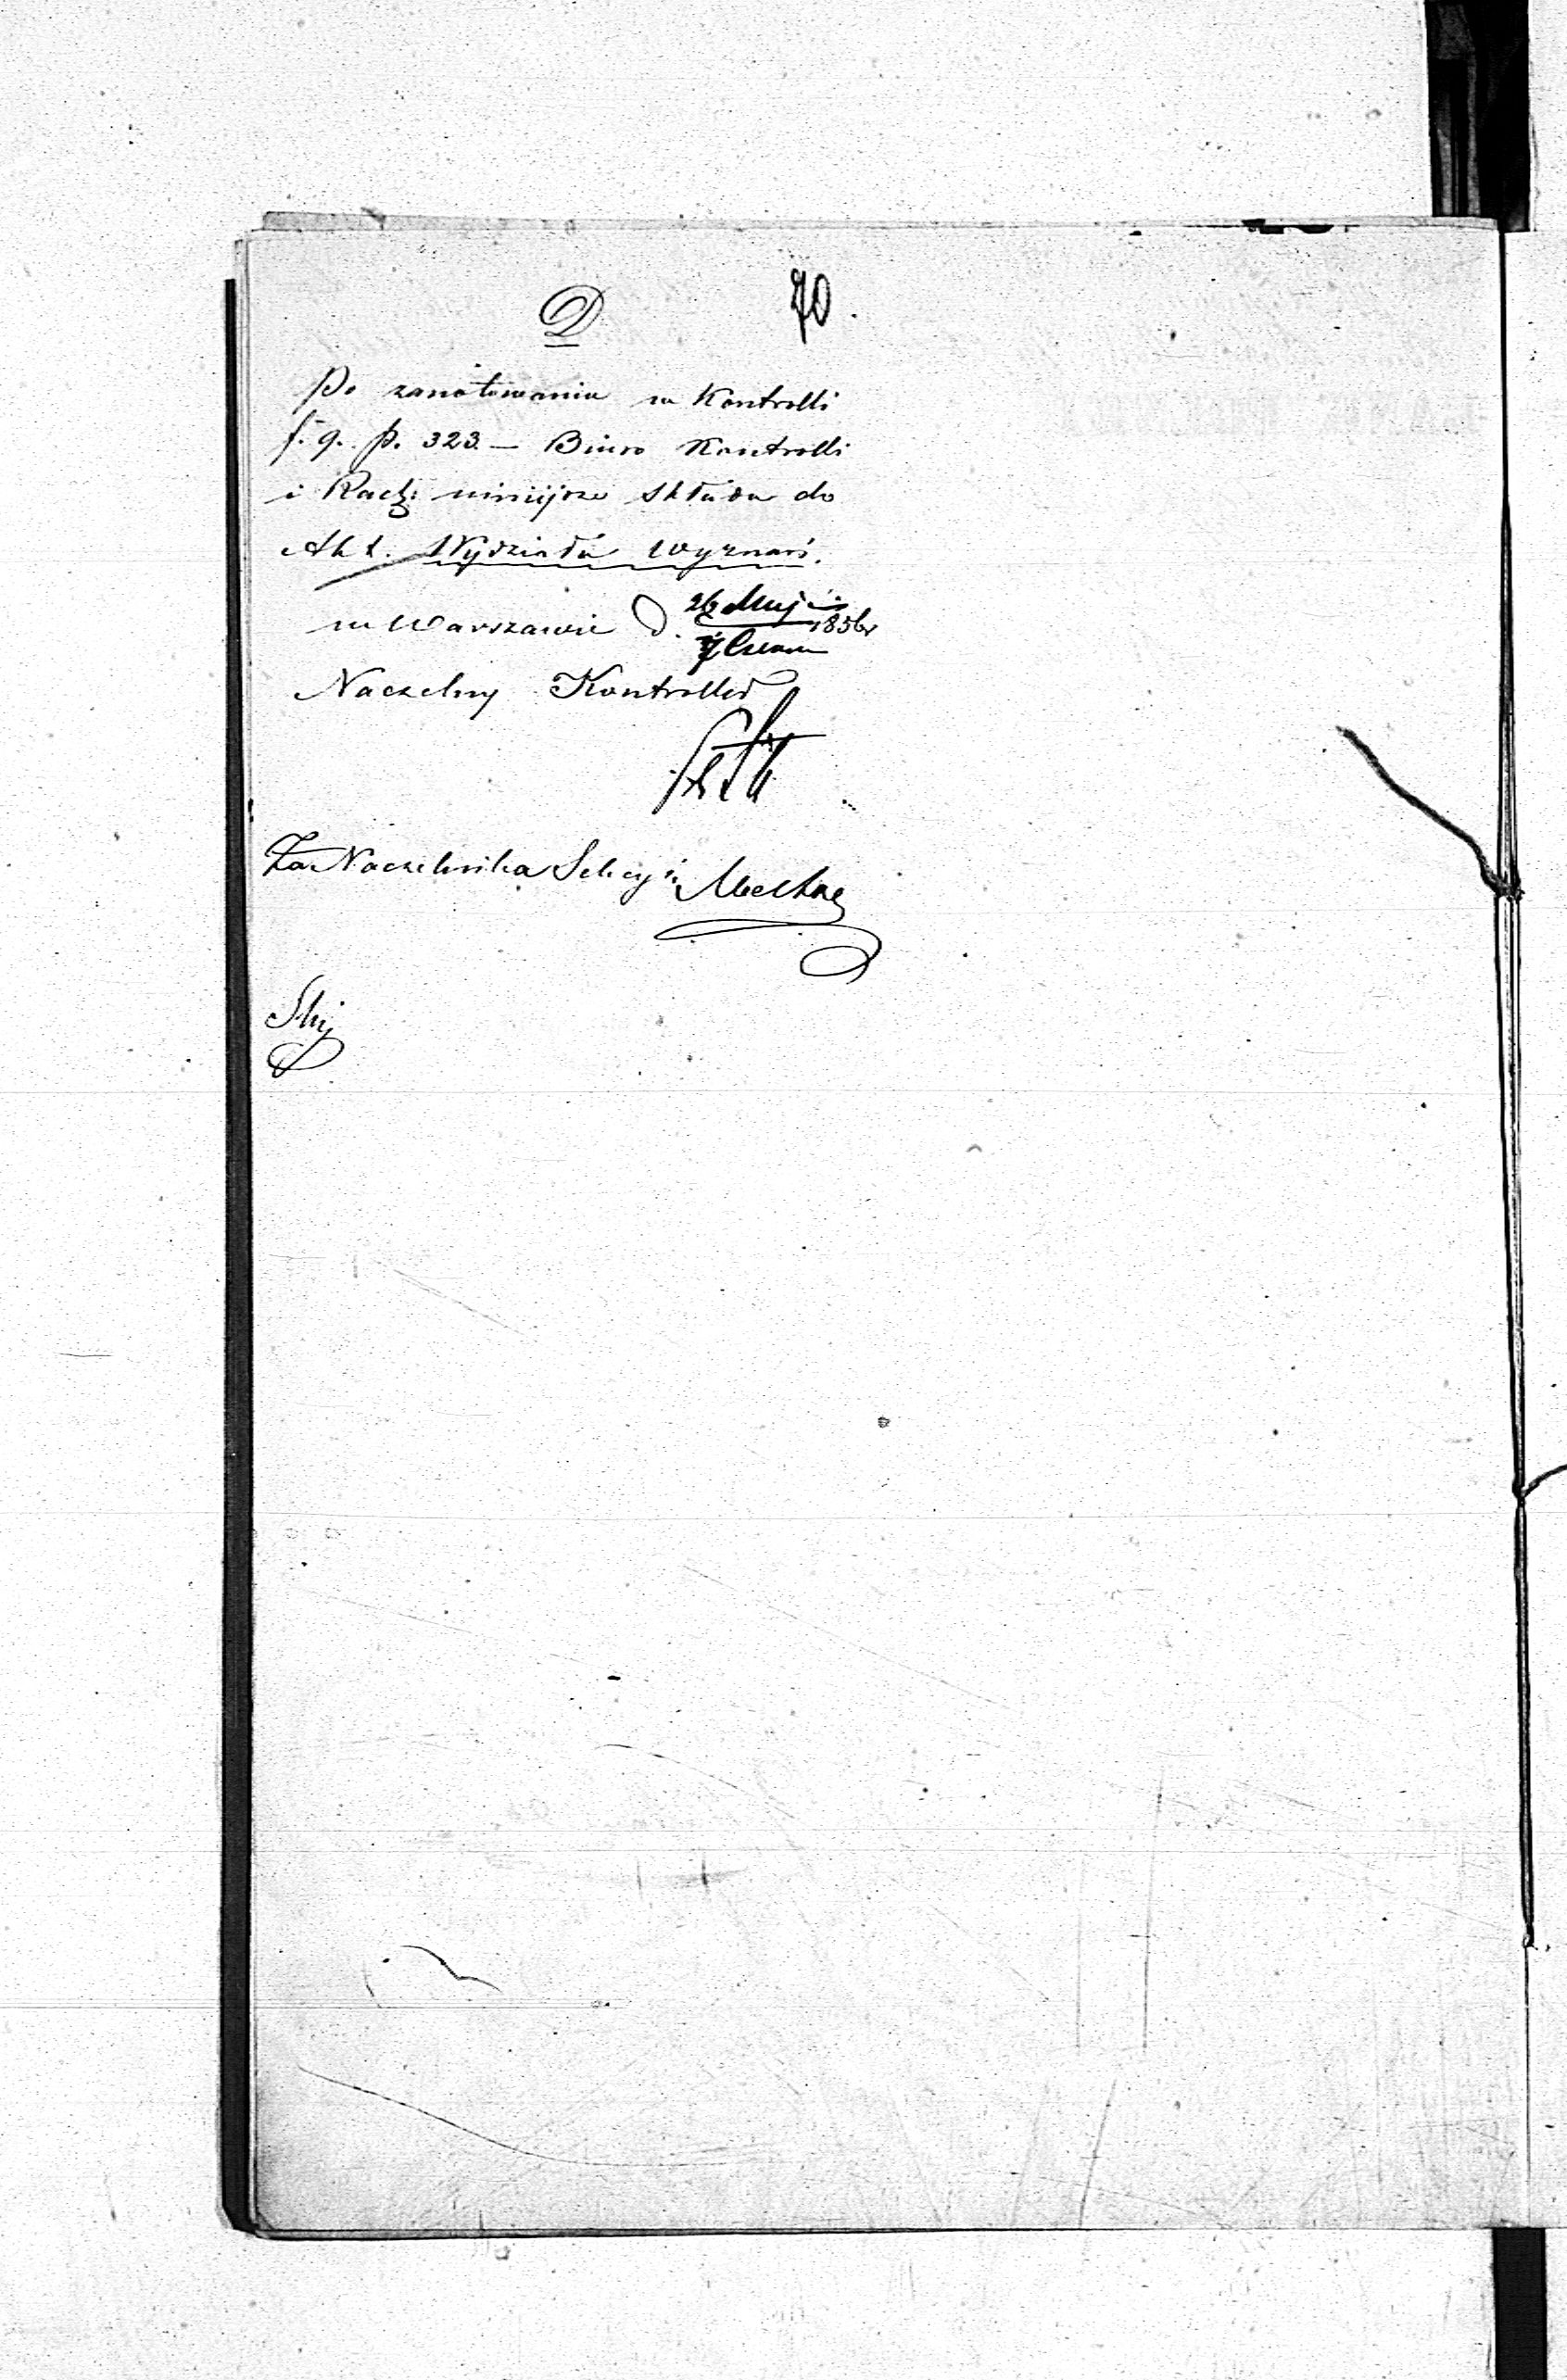 D 70.
Po zanotowaniu w Kontrolli
f. 9. p. 323. — Biuro Kontrolli
i Rach: niniejsze składa do
Akt. Wydziału Wyznań.
w Warszawie d. 26 Maja / 7 Czerw 1856 r
Naczelny Kontroller
Za Naczelnika Sekcyi